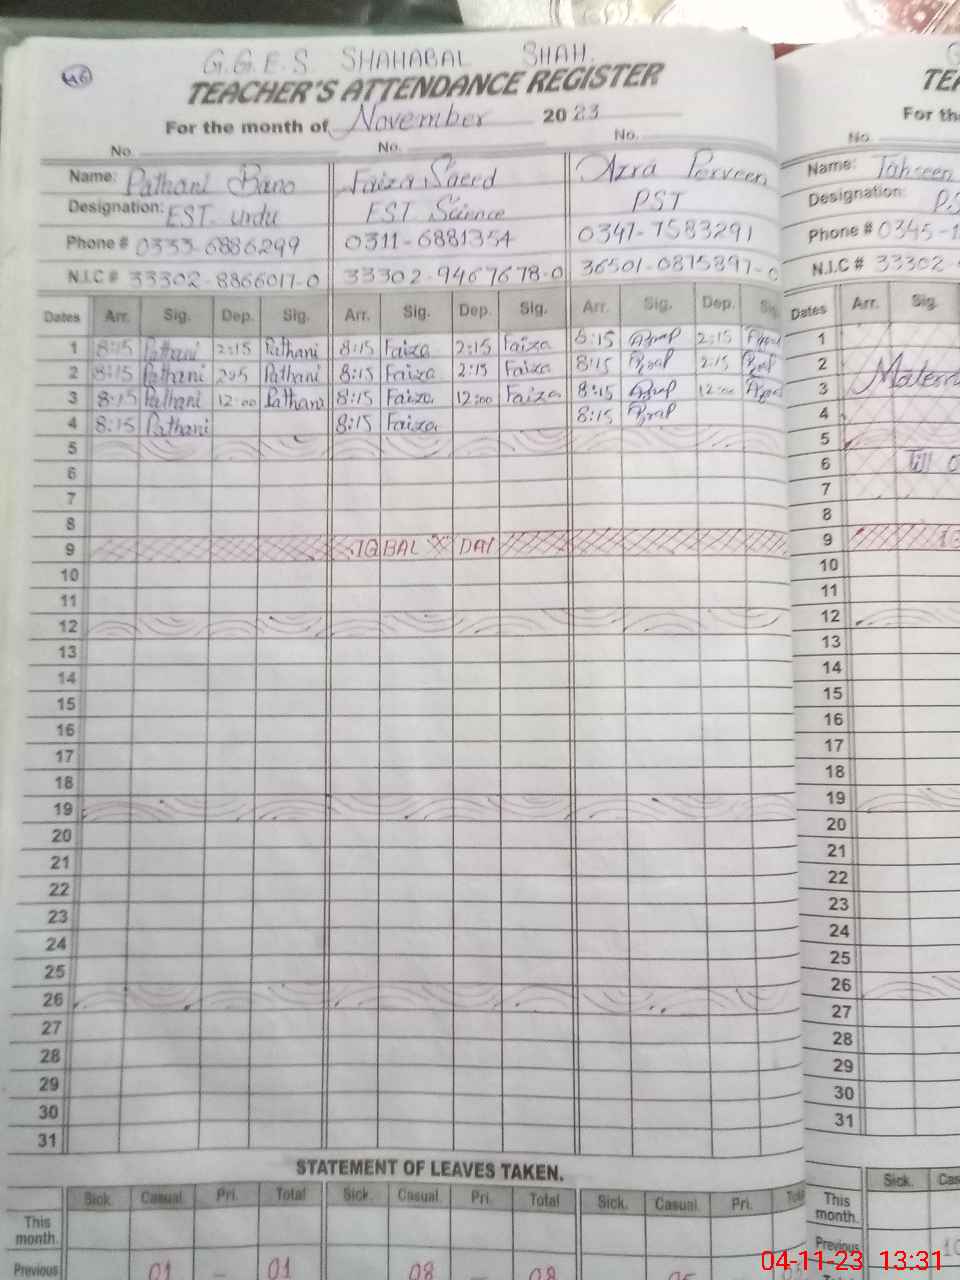 46
G.G.E.S SHAHABAL SHAH.
TEACHER'S ATTENDANCE REGISTER
For the month of November 2023
No. No. No.
Name: Pathani Bano Faiza Saeed Azra Perveen
Designation: EST. urdu EST Science PST
Phone # 0333-6886299 0311-6881354 0347-7583291
N.I.C # 33302-8866017-0 33302-9467678-0 36501-0875897-0
Dates Arr. Sig. Dep. Sig. Arr. Sig. Dep. Sig. Arr. Sig. Dep. Sig.
1 8:15 Pathani 2:15 Pathani 8:15 Faiza 2:15 Faiza 8:15 2:15
2 8:15 Pathani 2:15 Pathani 8:15 Faiza 2:15 Faiza 8:15 2:15
3 8:15 Pathani 12:00 Pathani 8:15 Faiza 12:00 Faiza 8:15 12:00
4 8:15 Pathani 8:15 Faiza 8:15
5
6
7
8
9 IQBAL DAY
10
11
12
13
14
15
16
17
18
19
20
21
22
23
24
25
26
27
28
29
30
31
STATEMENT OF LEAVES TAKEN.
Sick. Casual. Pri. Total Sick. Casual Pri. Total Sick. Casual. Pri.
This month.
Previous 01 - 01 08 - 08
For the
No.
Name: Tahseen
Designation:
Phone # 0345-
N.I.C # 33302
Dates Arr. Sig.
1
2
3
4
5
6 Till
7
8
9
10
11
12
13
14
15
16
17
18
19
20
21
22
23
24
25
26
27
28
29
30
31
Sick.
This month.
Previous 10
04-11-23 13:31